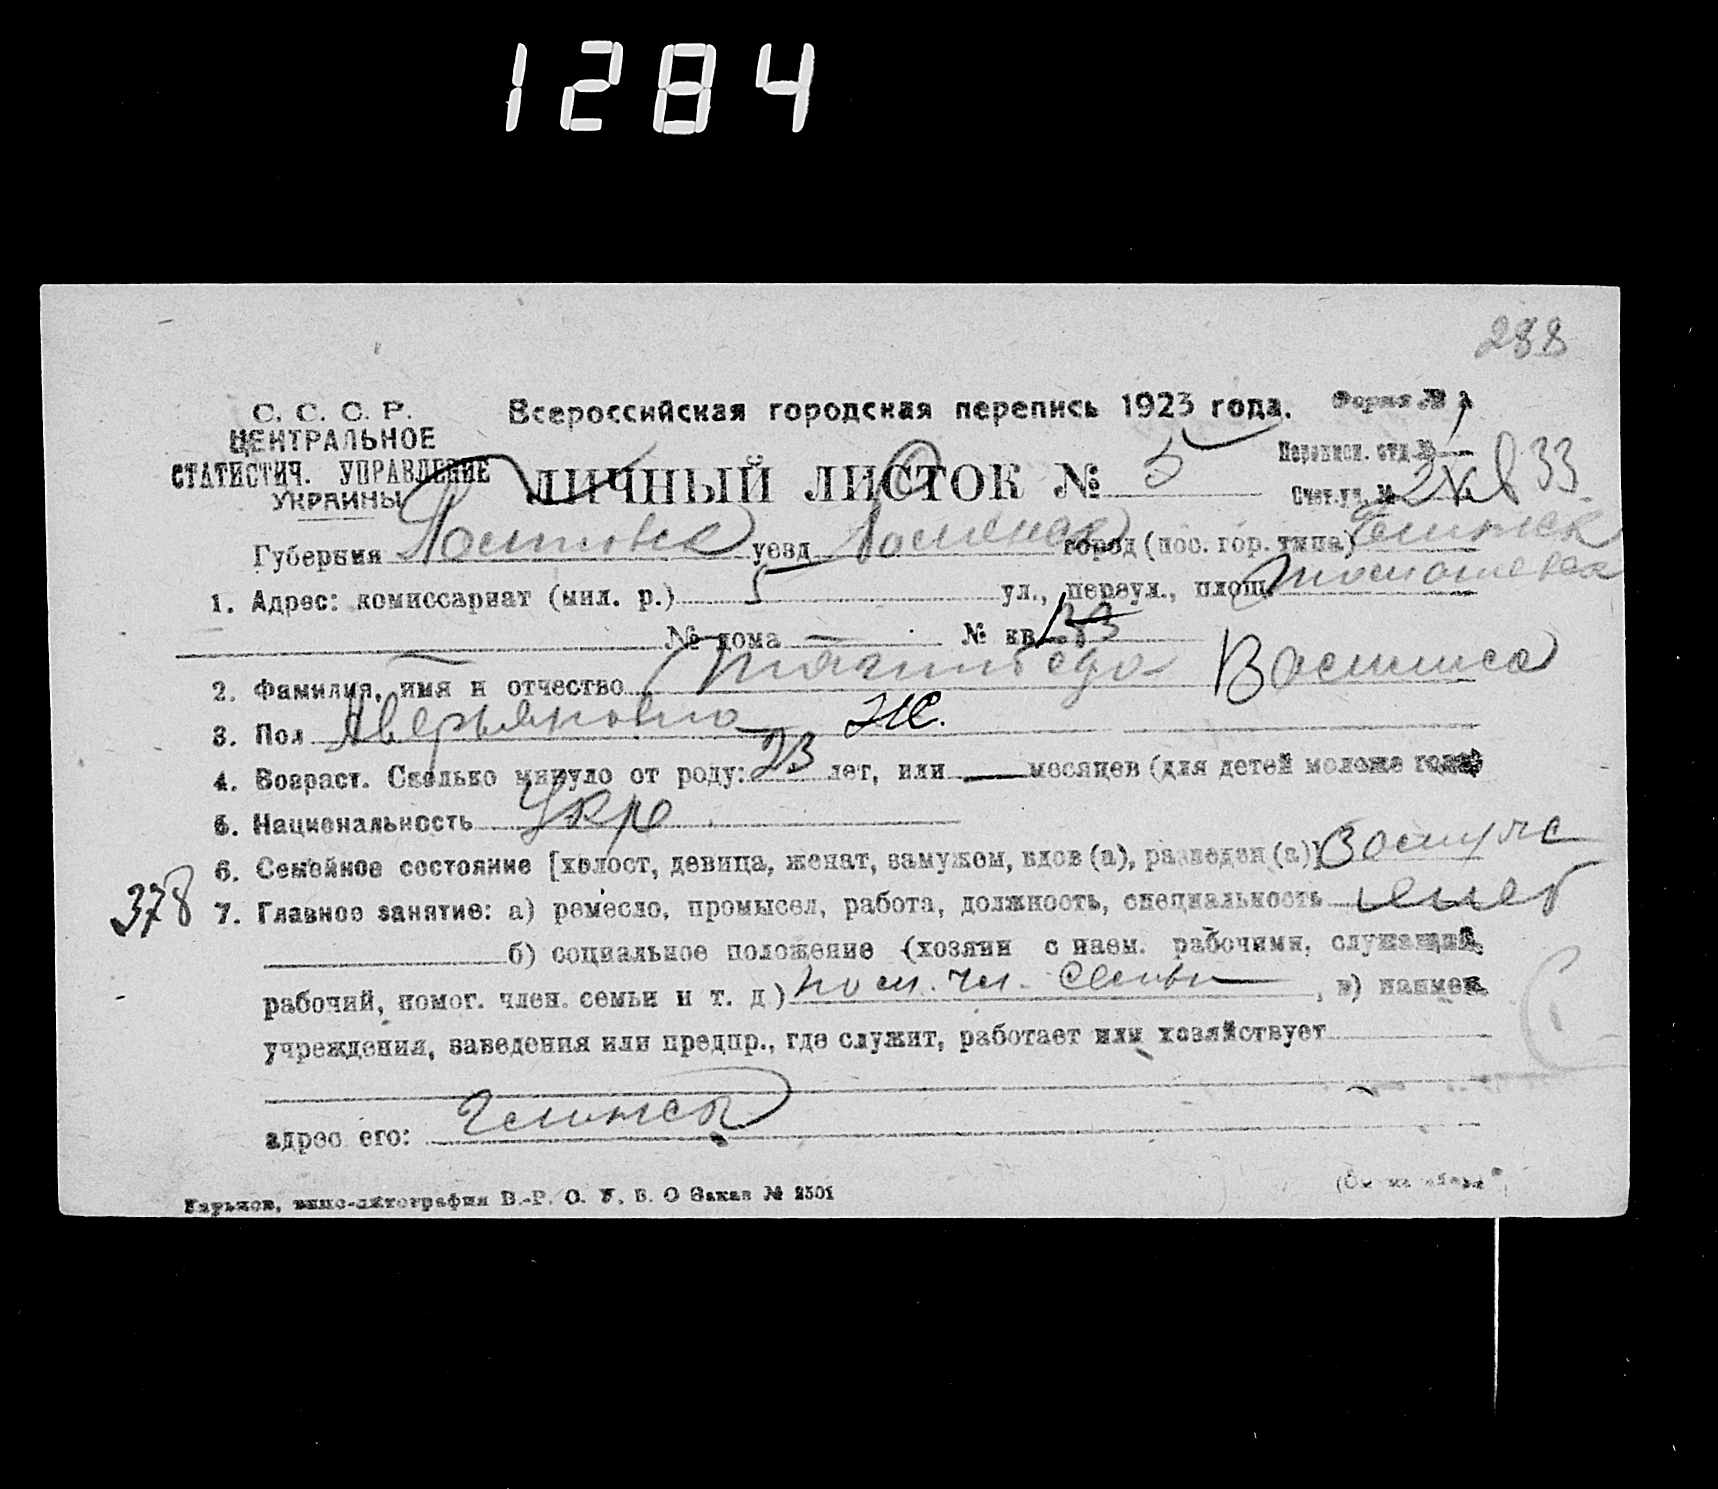 1284
288
С. С. С. Р.
ЦЕНТРАЛЬНОЕ
СТАТИСТИЧ. УПРАВЛЕНИЕ
УКРАИНЫ
Всероссийская городская перепись 1923 года.
Форма № 1
ЛИЧНЫЙ ЛИСТОК № 5
Переписн. отд. №
Счет. уч. № 33
Губерния Полтавска уезд город (пос. гор. типа) Глинск
1. Адрес: комиссариат (мил. р.) 5 ул., переул., площ.
№ дома — № кв. 133
2. Фамилия, имя и отчество Василиса
3. Пол Аверьяновна Ж.
4. Возраст. Сколько минуло от роду: 23 лет, или — месяцев (для детей моложе года)
5. Национальность Укр
6. Семейное состояние [холост, девица, женат, замужем, вдов (а), разведен (а)] Замуже
378
7. Главное занятие: а) ремесло, промысел, работа, должность, специальность
б) социальное положение (хозяин с наем. рабочими, служащий,
рабочий, помог. член. семьи и т. д) пом. чл. семьи, в) наимен.
учреждения, заведения или предпр., где служит, работает или хозяйствует
адрес его: Глинск
Харьков, типо-литография В.-Р. О. У. В. О Заказ № 2501